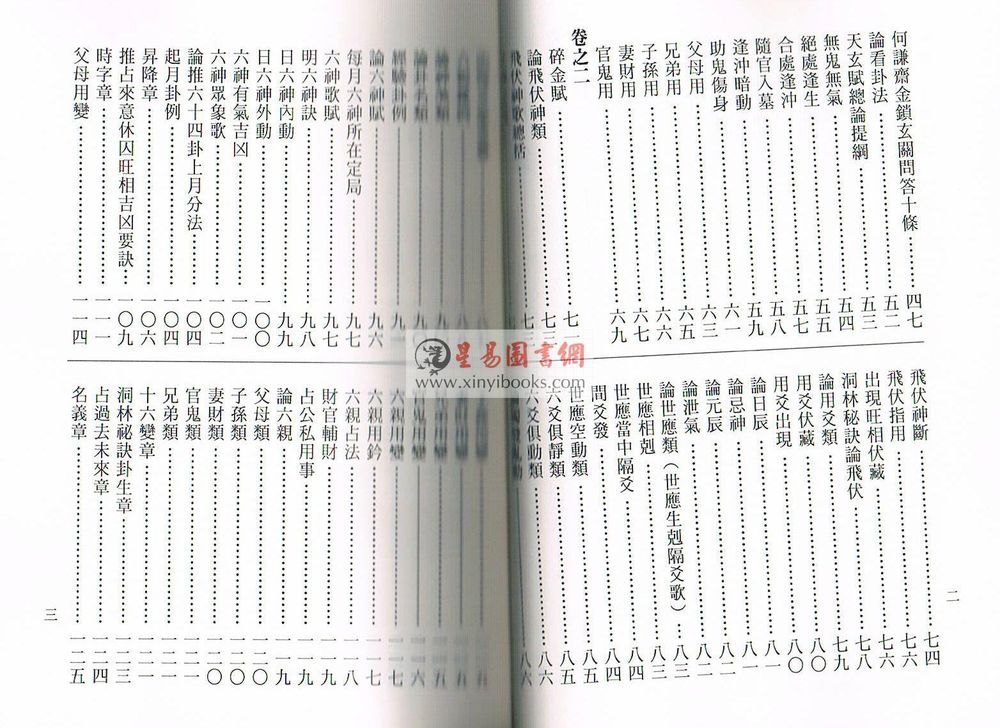 何謙齋金鎖玄關問答十條⋯⋯四七
論看卦法⋯⋯五二
天玄賦總論提綱⋯⋯五三
無鬼無氣⋯⋯五四
絕處逢生⋯⋯五五
合處逢沖⋯⋯五八
隨官入墓⋯⋯五九
逢沖暗動⋯⋯六一
助鬼傷身⋯⋯六三
父母用⋯⋯六五
兄弟用⋯⋯六六
子孫用⋯⋯六七
妻財用⋯⋯六七
官鬼用⋯⋯六九
卷之二
碎金賦⋯⋯七
論飛伏神類⋯⋯七三
飛伏神歌總括
飛伏神斷⋯⋯七四
飛伏指用⋯⋯七六
出現旺相伏藏⋯⋯七六
洞林秘訣論飛伏⋯⋯七八
論用爻類⋯⋯七九
用爻伏藏⋯⋯八〇
用爻出現⋯⋯八〇
論日辰⋯⋯八一
論忌神⋯⋯八一
論元辰⋯⋯八二
論泄氣⋯⋯八二
論世應類（世應生剋隔爻歌）⋯⋯八三
世應相剋⋯⋯八三
世應當中隔爻⋯⋯八四
間爻發⋯⋯八四
世應空動類⋯⋯八五
六爻俱靜類⋯⋯八五
六爻俱動類⋯⋯八六
二
論卦身類
經驗卦例
論六神賦⋯⋯九六
每月六神所在定局⋯⋯九七
六神歌賦⋯⋯九七
明六神訣⋯⋯九八
日六神內動⋯⋯九九
日六神外動⋯⋯一〇〇
六神有氣吉凶⋯⋯一〇一
六神眾象歌⋯⋯一〇二
論推六十四卦上月分法⋯⋯一〇四
起月卦例⋯⋯一〇四
昇降章⋯⋯一〇六
推占來意休囚旺相吉凶要訣⋯⋯一〇九
時字章⋯⋯一一一
父母用變⋯⋯一一四
六親用鈐⋯⋯一一七
六親占法⋯⋯一一八
財官輔財⋯⋯一一九
占公私用事⋯⋯一一九
論六親⋯⋯一一九
父母類⋯⋯一二〇
子孫類⋯⋯一二〇
妻財類⋯⋯一二〇
官鬼類⋯⋯一二一
兄弟類⋯⋯一二一
十六變章⋯⋯一二二
洞林祕訣卦生章⋯⋯一二三
占過去未來章⋯⋯一二四
名義章⋯⋯一二五
三
星易圖書網
www.xinyibooks.com